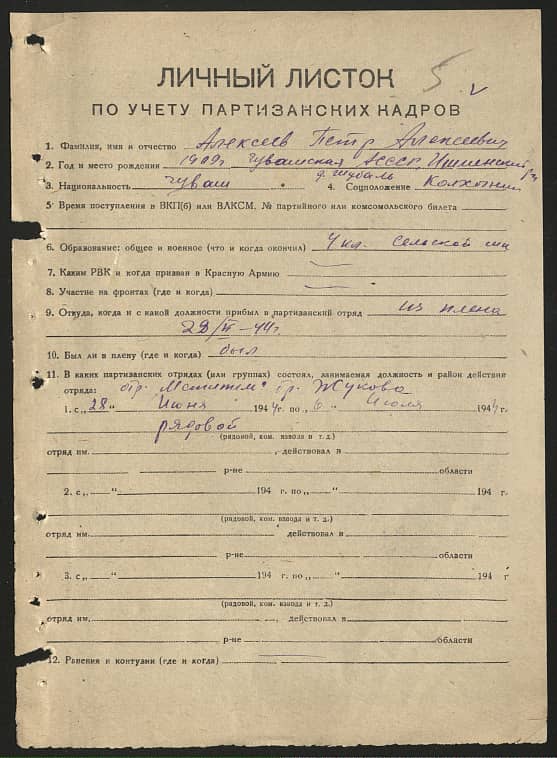 5 v
ЛИЧНЫЙ ЛИСТОК
ПО УЧЕТУ ПАРТИЗАНСКИХ КАДРОВ
1. Фамилия, имя и отчество Алексеев Петр Алексеевич
2. Год и место рождения 1909г Чувашская АССР,
д. Шубаль
3. Национальность чуваш 4. Соцположение Колхозник
5 Время поступления в ВКП(б) или ВЛКСМ, № партийного или комсомольского билета
6. Образование: общее и военное (что и когда окончил) 4 кл. сельской шк
7. Каким РВК и когда призван в Красную Армию
8. Участие на фронтах (где и когда)
9. Откуда, когда и с какой должности прибыл в партизанский отряд из плена
10. Был ли в плену (где и когда) был
11. В каких партизанских отрядах (или группах) состоял, занимаемая должность и район действия
отряда: отр. Мститель" бр. Жукова
1. с „28" Июня 1944г. по „6" Июля 1944г.
рядовой
(рядовой, ком. взвода и т. д.)
отряд им. , действовал в
р-не области
2. с „ " 194 г. по „ " 194 г.
(рядовой, ком. взвода и т. д.)
отряд им. действовал в
р-не области
3. с „ " 194 г. по „ " 194 г
(рядовой, ком. взвода и т. д.)
отряд им. , действовал в
р-не области
12. Ранения и контузии (где и когда)